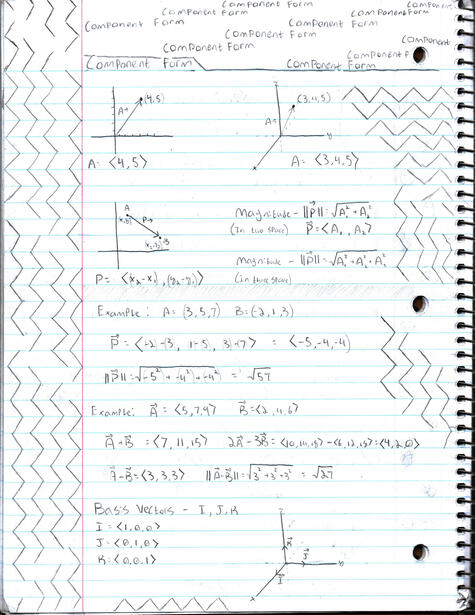 Component Form Component
Component Form Component Form
Component Form Component Form
Component Form
Component Form
Component Form Component Form
(4,5) (3,4,5)
A→ A→
A = ⟨4,5⟩ A = ⟨3,4,5⟩
A
(x₁,y₁) P→ B
(x₂,y₂)
Magnitude - ||P⃗|| = √A₁² + A₂²
(In two space) P⃗ = ⟨A₁, A₂⟩
Magnitude - ||P⃗|| = √A₁² + A₂² + A₃²
P = ⟨x₂-x₁),(y₂-y₁⟩ (in three space)
Example: A = (3,5,7) B = (-2,1,3)
P⃗ = ⟨-2-3, 1-5, 3-7⟩ = ⟨-5,-4,-4⟩
||P⃗|| = √-5²)+-4²)+-4²) = √57
Example: A⃗ = ⟨5,7,9⟩ B⃗ = ⟨2,4,6⟩
A⃗+B⃗ = ⟨7,11,15⟩ 2A⃗-3B⃗ = ⟨10,14,18⟩-⟨6,12,18⟩=⟨4,2,0⟩
A⃗-B⃗ = ⟨3,3,3⟩ ||A⃗-B⃗|| = √3²+3²+3² = √27
Basis Vectors - I, J, K
I = ⟨1,0,0⟩
J = ⟨0,1,0⟩
K = ⟨0,0,1⟩
K
J
I